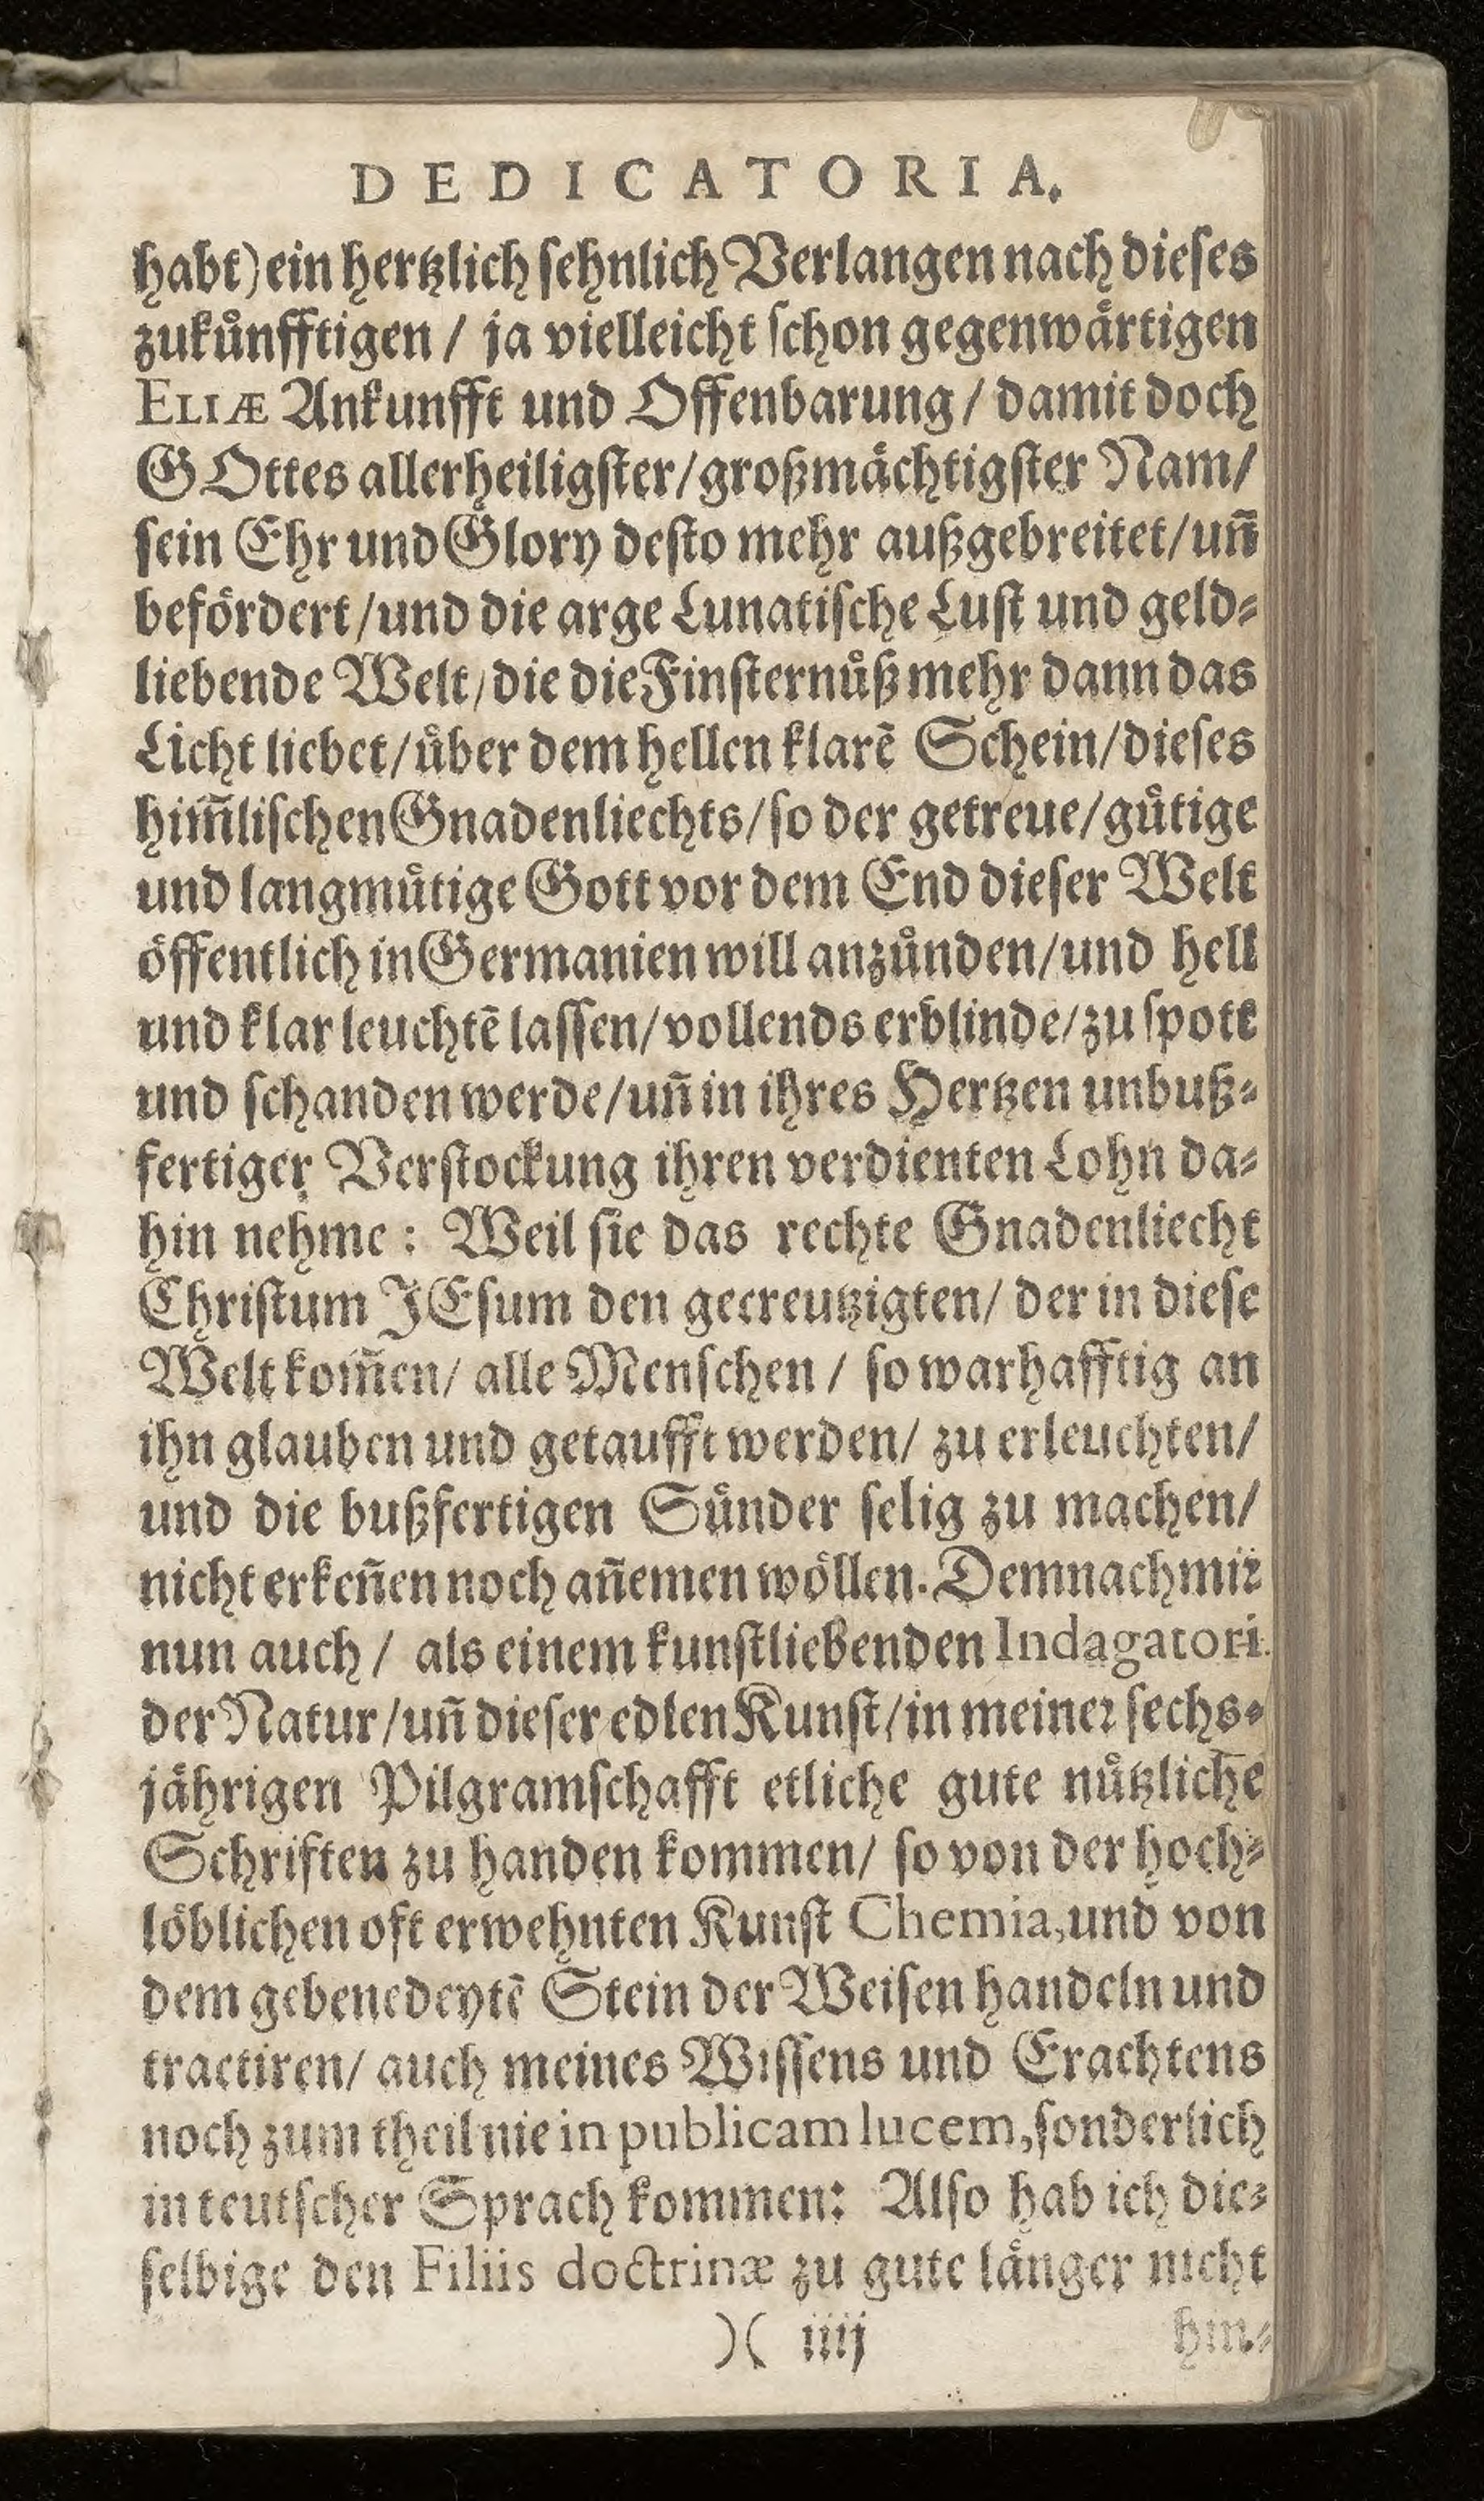 DEDICATORIA.
habt) ein hertzlich ſehnlich Verlangen nach dieſes
zukuͤnfftigen / ja vielleicht ſchon gegenwaͤrtigen
ELIÆ Ankunfft und Offenbarung / damit doch
GOttes allerheiligſter / großmaͤchtigſter Nam /
ſein Ehr und Glory deſto mehr außgebreitet / uñ
befoͤrdert / und die arge Lunatiſche Luſt und geld⸗
liebende Welt / die die Finſternuͤß mehr dann das
Licht liebet / uͤber dem hellen klarẽ Schein / dieſes
him̃liſchen Gnadenliechts / ſo der getreue / guͤtige
und langmuͤtige Gott vor dem End dieſer Welt
oͤffentlich in Germanien will anzuͤnden / und hell
und klar leuchtẽ laſſen / vollends erblinde / zu ſpott
und ſchanden werde / uñ in ihres Hertzen unbuß⸗
fertiger Verſtockung ihren verdienten Lohn da⸗
hin nehme : Weil ſie das rechte Gnadenliecht
Chriſtum JEſum den gecreutzigten / der in dieſe
Welt kom̃en / alle Menſchen / ſo warhafftig an
ihn glauben und getaufft werden / zu erleuchten /
und die bußfertigen Suͤnder ſelig zu machen /
nicht erkeñen noch añemen woͤllen. Demnach mir
nun auch / als einem kunſtliebenden Indagatori
der Natur / uñ dieſer edlen Kunſt / in meiner ſechs⸗
jaͤhrigen Pilgramſchafft etliche gute nuͤtzliche
Schriften zu handen kommen / ſo von der hoch⸗
loͤblichen oft erwehnten Kunſt Chemia, und von
dem gebenedeytẽ Stein der Weiſen handeln und
tractiren / auch meines Wiſſens und Erachtens
noch zum theil nie in publicam lucem, ſonderlich
in teutſcher Sprach kommen: Alſo hab ich die⸗
ſelbige den Filiis doctrinæ zu gute laͤnger nicht
)( iiij hin⸗